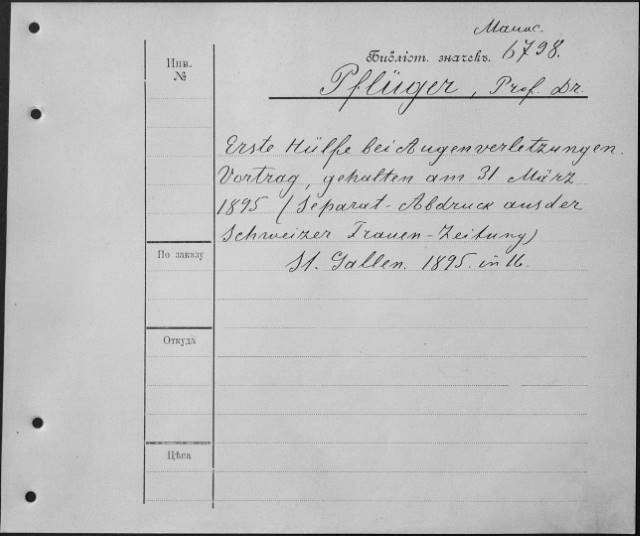 Манас.
Инв.
№
Библіот. значекъ. 6798.
Pflüger, Prof. Dr.
Erste Hülfe bei Augenverletzungen.
Vortrag, gehalten am 31 März
1895 (Separat-Abdruck aus der
Schweizer Frauen-Zeitung)
St. Gallen. 1895. in 16.
По заказу
Откуда
Цѣна